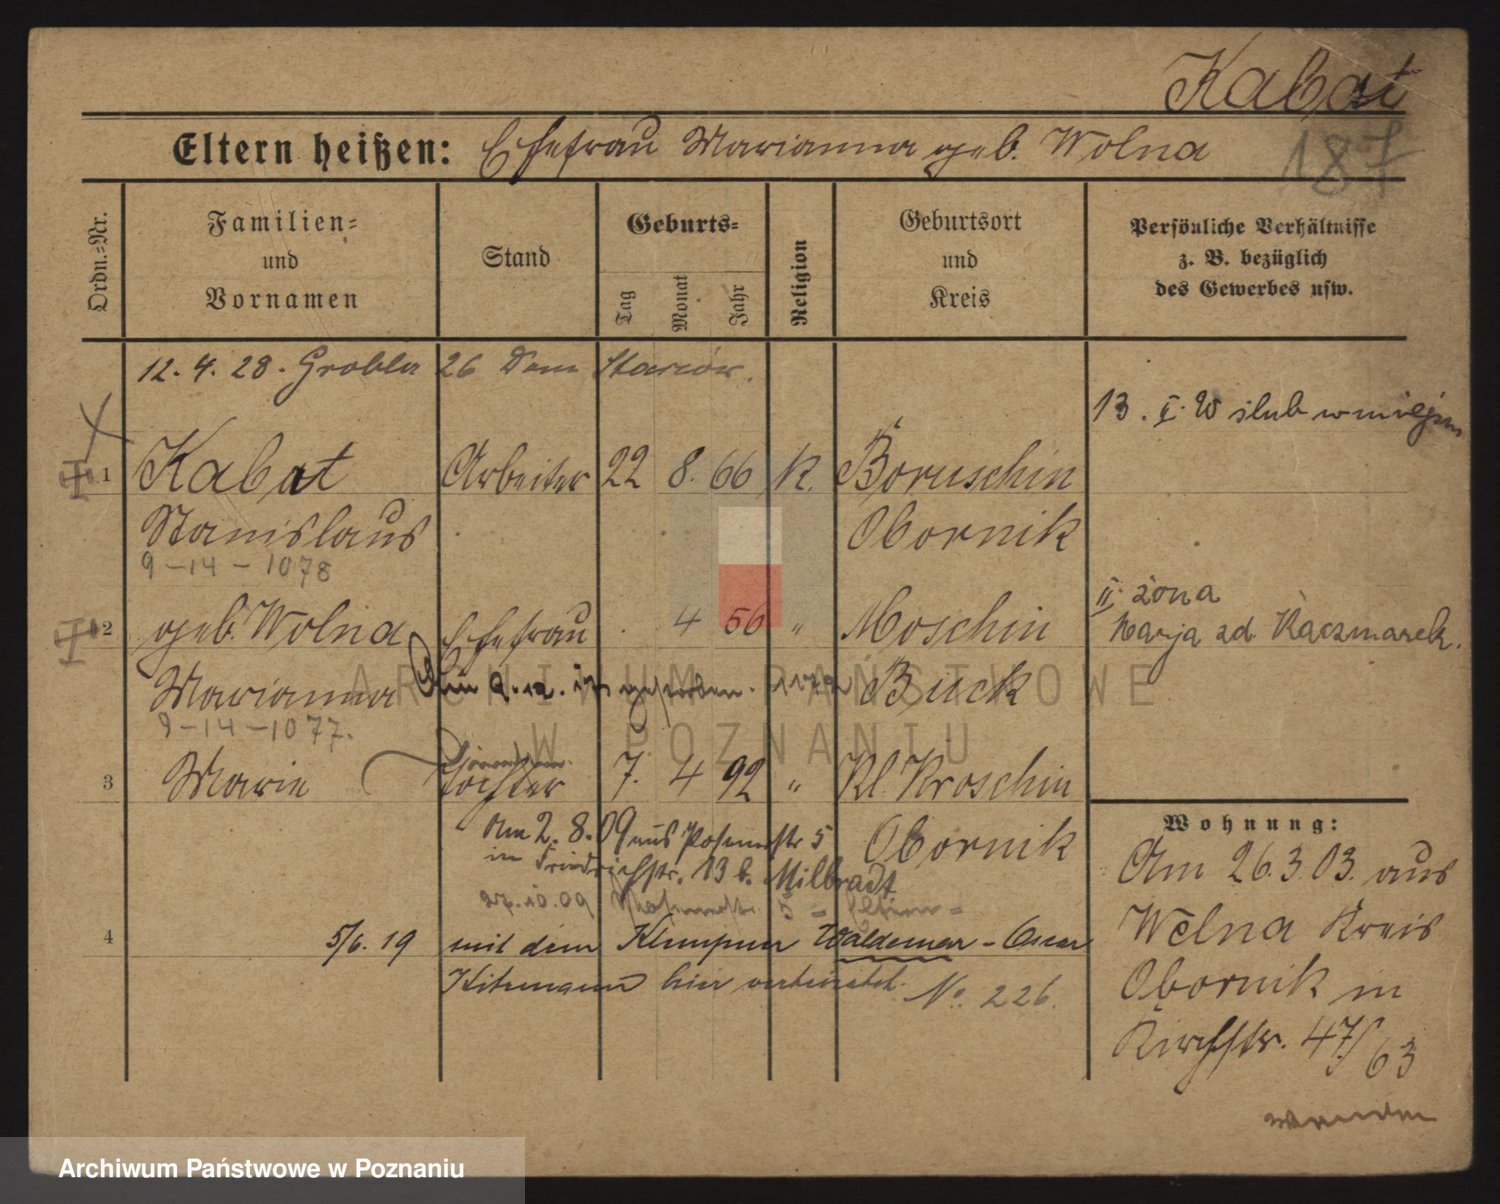 Kabat
187
Eltern heißen: Ehefrau Marianna geb. Wolna
Ordn.=Nr.
Familien=
und
Vornamen
Stand
Geburts=
Tag
Monat
Jahr
Religion
Geburtsort
und
Kreis
Persönliche Verhältnisse
z. B. bezüglich
des Gewerbes usw.
12. 4. 28. Grobla 26 Dom Starców.
13. II. W ślub w miejscu
1 Kabat Arbeiter 22 8. 66 K. Boruschin
Stanislaus Obornik
9-14-1078
II. żona
Marja zd. Kaczmarek.
2 geb. Wolna Ehefrau 4 56 " Moschin
Marianna Am 9.12. gestorben. Buck
9-14-1077.
3 Marie Tochter 7. 4 92 " Kl. Kroschin
Am 2. 8. 09 aus Posenerstr 5 Obornik
in Friedrichstr. 13 b. Milbradt
27.10.09 5 - Eltern -
4 5/6. 19 mit dem Klempner Waldemar - Oscar
Kitzmann hier verheiratet. No. 226.
Wohnung:
Am 26.3.03. aus
Welna Kreis
Obornik in
Kirchstr. 47/63
wenden
ARCHIWUM PAŃSTWOWE
W POZNANIU
Archiwum Państwowe w Poznaniu